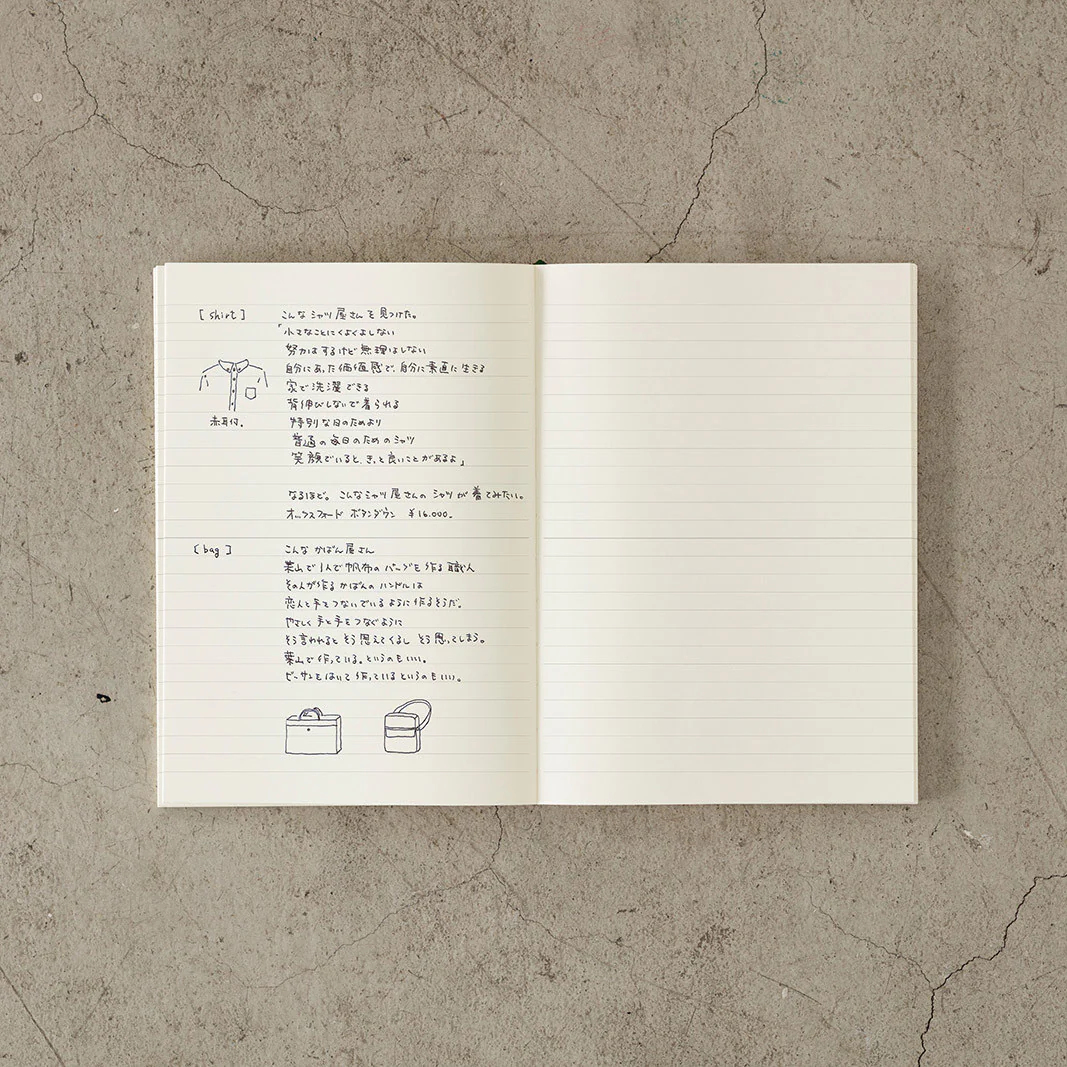 [ shirt ]
こんな シャツ 屋さん を 見つけた。
「小さなことにくよくよしない
努力は するけど 無理はしない
自分にあった価値感で、自分に素直に生きる
家で洗濯できる
背伸びしないで着られる
特別な日のためより
普通の毎日のためのシャツ
笑顔でいると、きっと良いことがあるよ」
赤耳付.
なるほど。こんなシャツ屋さんの シャツが 着てみたい。
オックスフォード ボタンダウン ¥16.000.
[ bag ]
こんな かばん屋さん
葉山で1人で帆布のバッグを作る職人
その人が作るかばんの ハンドルは
恋人と手をつないでいるように作るそうだ。
やさしく 手と手をつなぐように
そう言われると そう思えてくるし そう思ってしまう。
葉山で作っている。というのもいい。
ビーサンをはいて 作っているというのもいい。